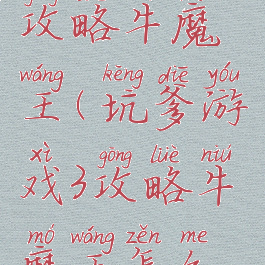 攻略牛魔
wáng kēng diē yóu
王(坑爹游
xì gōng lüè niú
戏3攻略牛
mó wáng zěn me
魔王怎么